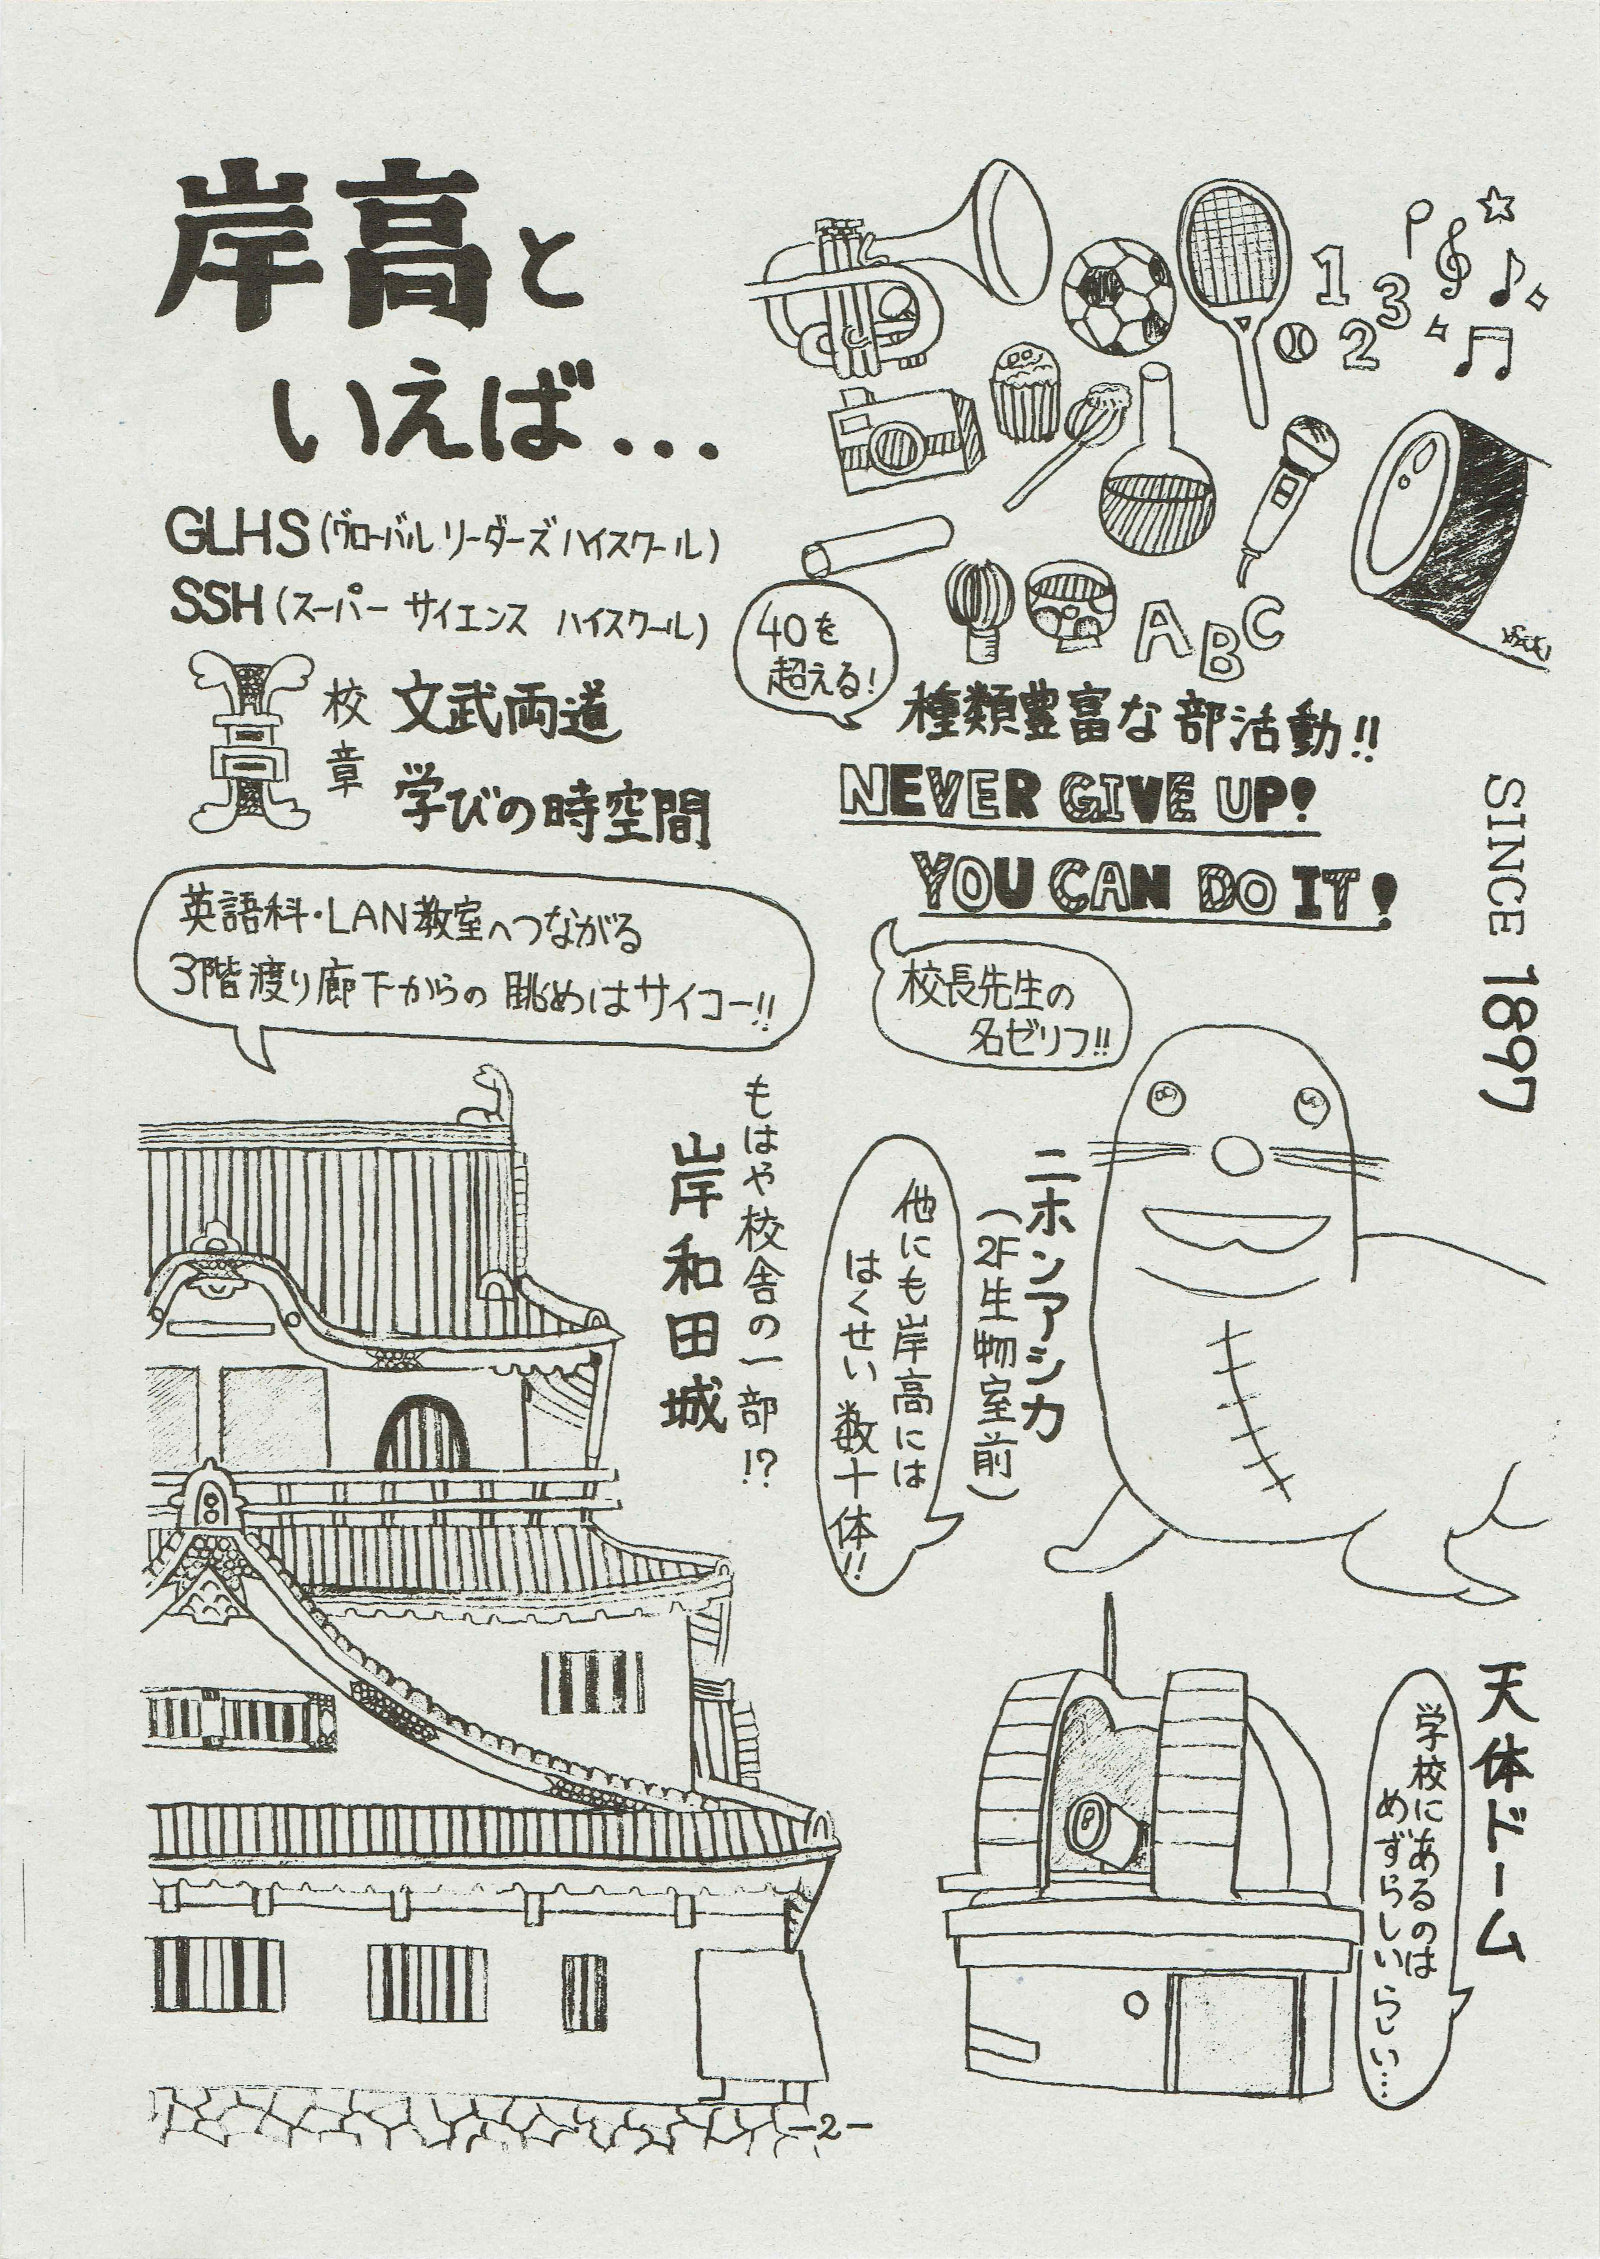 岸高と
いえば...
GLHS(グローバルリーダーズハイスクール)
SSH(スーパー サイエンス ハイスクール)
校章
文武両道
学びの時空間
40を
超える!
種類豊富な部活動!!
1
2
3
ABC
NEVER GIVE UP!
YOU CAN DO IT!
校長先生の
名ゼリフ!!
SINCE 1897
英語科・LAN教室へつながる
3階渡り廊下からの眺めはサイコー!!
もはや校舎の一部!?
岸和田城
ニホンアシカ
(2F生物室前)
他にも岸高には
はくせい数十体!!
天体ドーム
学校にあるのは
めずらしいらしい...
-2-